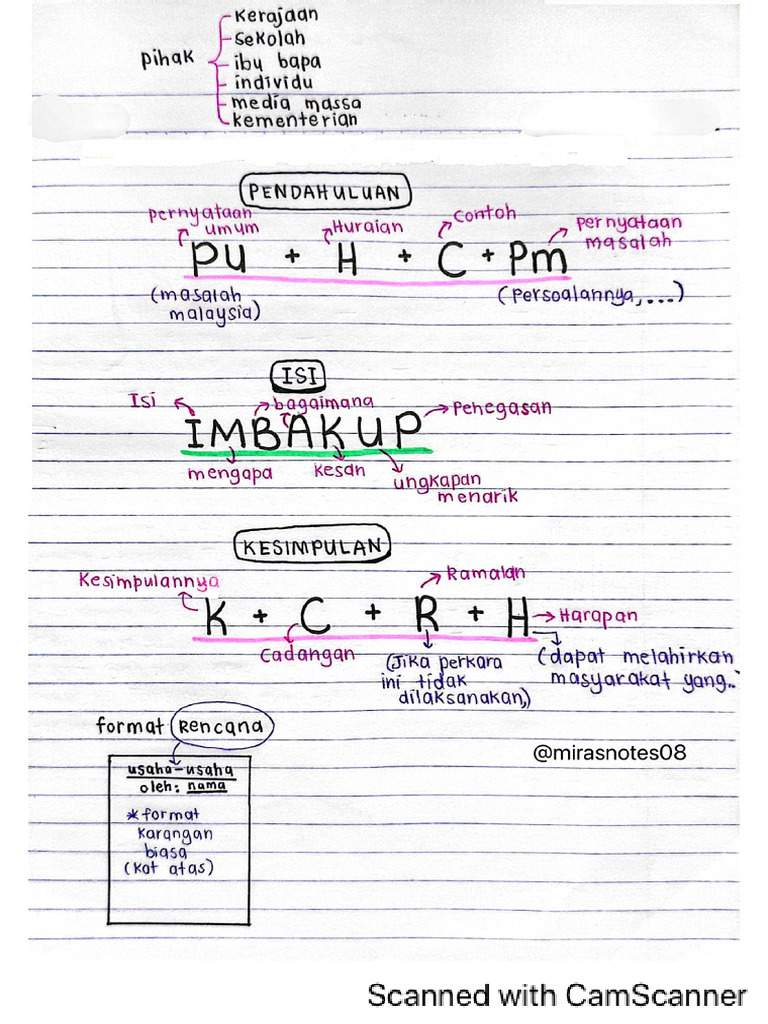 pihak
Kerajaan
Sekolah
ibu bapa
individu
media massa
kementerian
PENDAHULUAN
pernyataan umum
Huraian
Contoh
Pernyataan masalah
PU + H + C + Pm
(masalah malaysia)
(Persoalannya,....)
ISI
Isi
bagaimana
Penegasan
IMBAKUP
mengapa
Kesan
ungkapan menarik
KESIMPULAN
Kesimpulannya
Ramalan
K + C + R + H
Harapan
Cadangan
(Jika perkara ini tidak dilaksanakan,)
(dapat melahirkan masyarakat yang..
format Rencana
@mirasnotes08
usaha-usaha
oleh: nama
*format
Karangan
biasa
(Kat atas)
Scanned with CamScanner